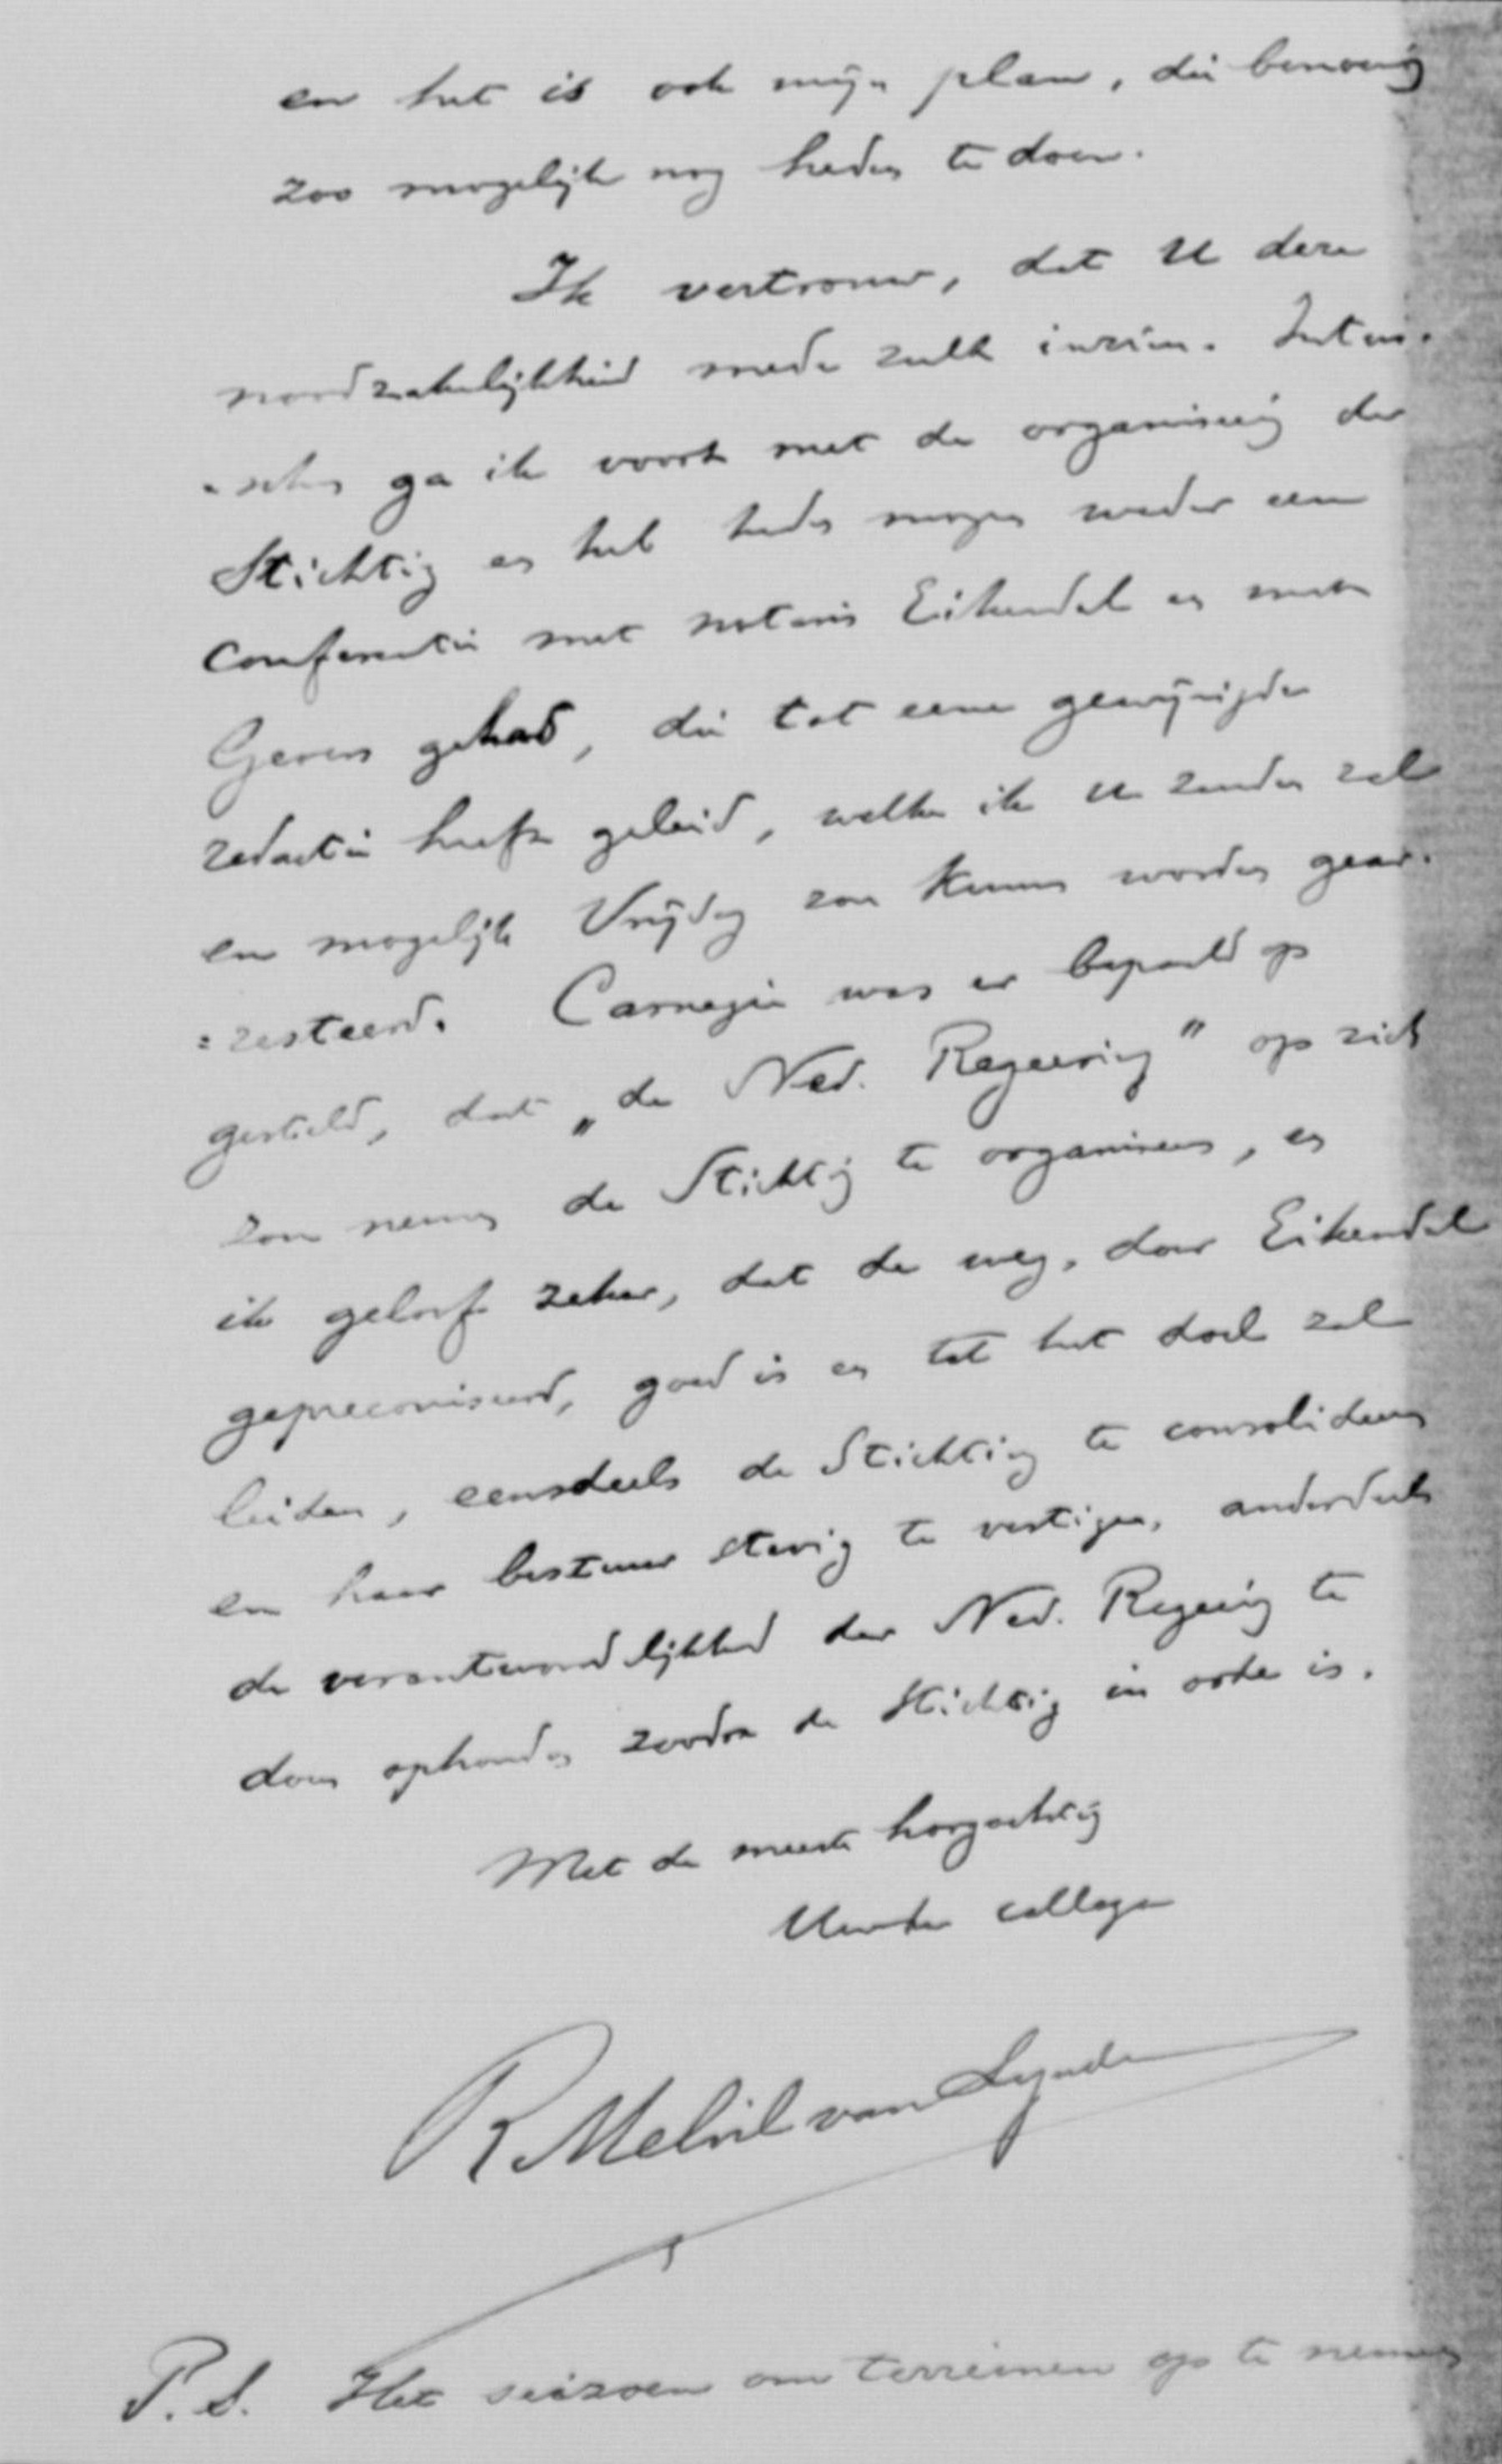 en het is ook mijn plan, die benoeming
zoo mogelijk nog heden te doen.
Ik vertrouw, dat U deze
noodzakelijkheid mede zult inzien. Intus-
-schen ga ik voort met de organiseering der
Stichting en heb heden morgen weder eene
conferentie met notaris Eikendal en met
Gevers gehad, die tot eene gewijzigde
redactie heeft geleid, welke ik U zenden zal
en mogelijk Vrijdag zou kunnen worden gear-
=resteerd. Carnegie was er bepaald op
gesteld, dat „de Ned. Regeering" op zich
zou nemen de Stichting te organiseren, en
ik geloof zeker, dat de weg, door Eikendal
gepreconiseerd, goed is en tot het doel zal
leiden, eensdeels de Stichting te consolideren
en haar bestuur stevig te vestigen, anderdeels
de verantwoordelijkheid der Ned. Regeering te
doen ophouden zoodra de Stichting in orde is.
Met de meeste hoogachting
Uwerdw collega
R Melvil van Lynden
P.S. Het seizoen om terreinen op te nemen